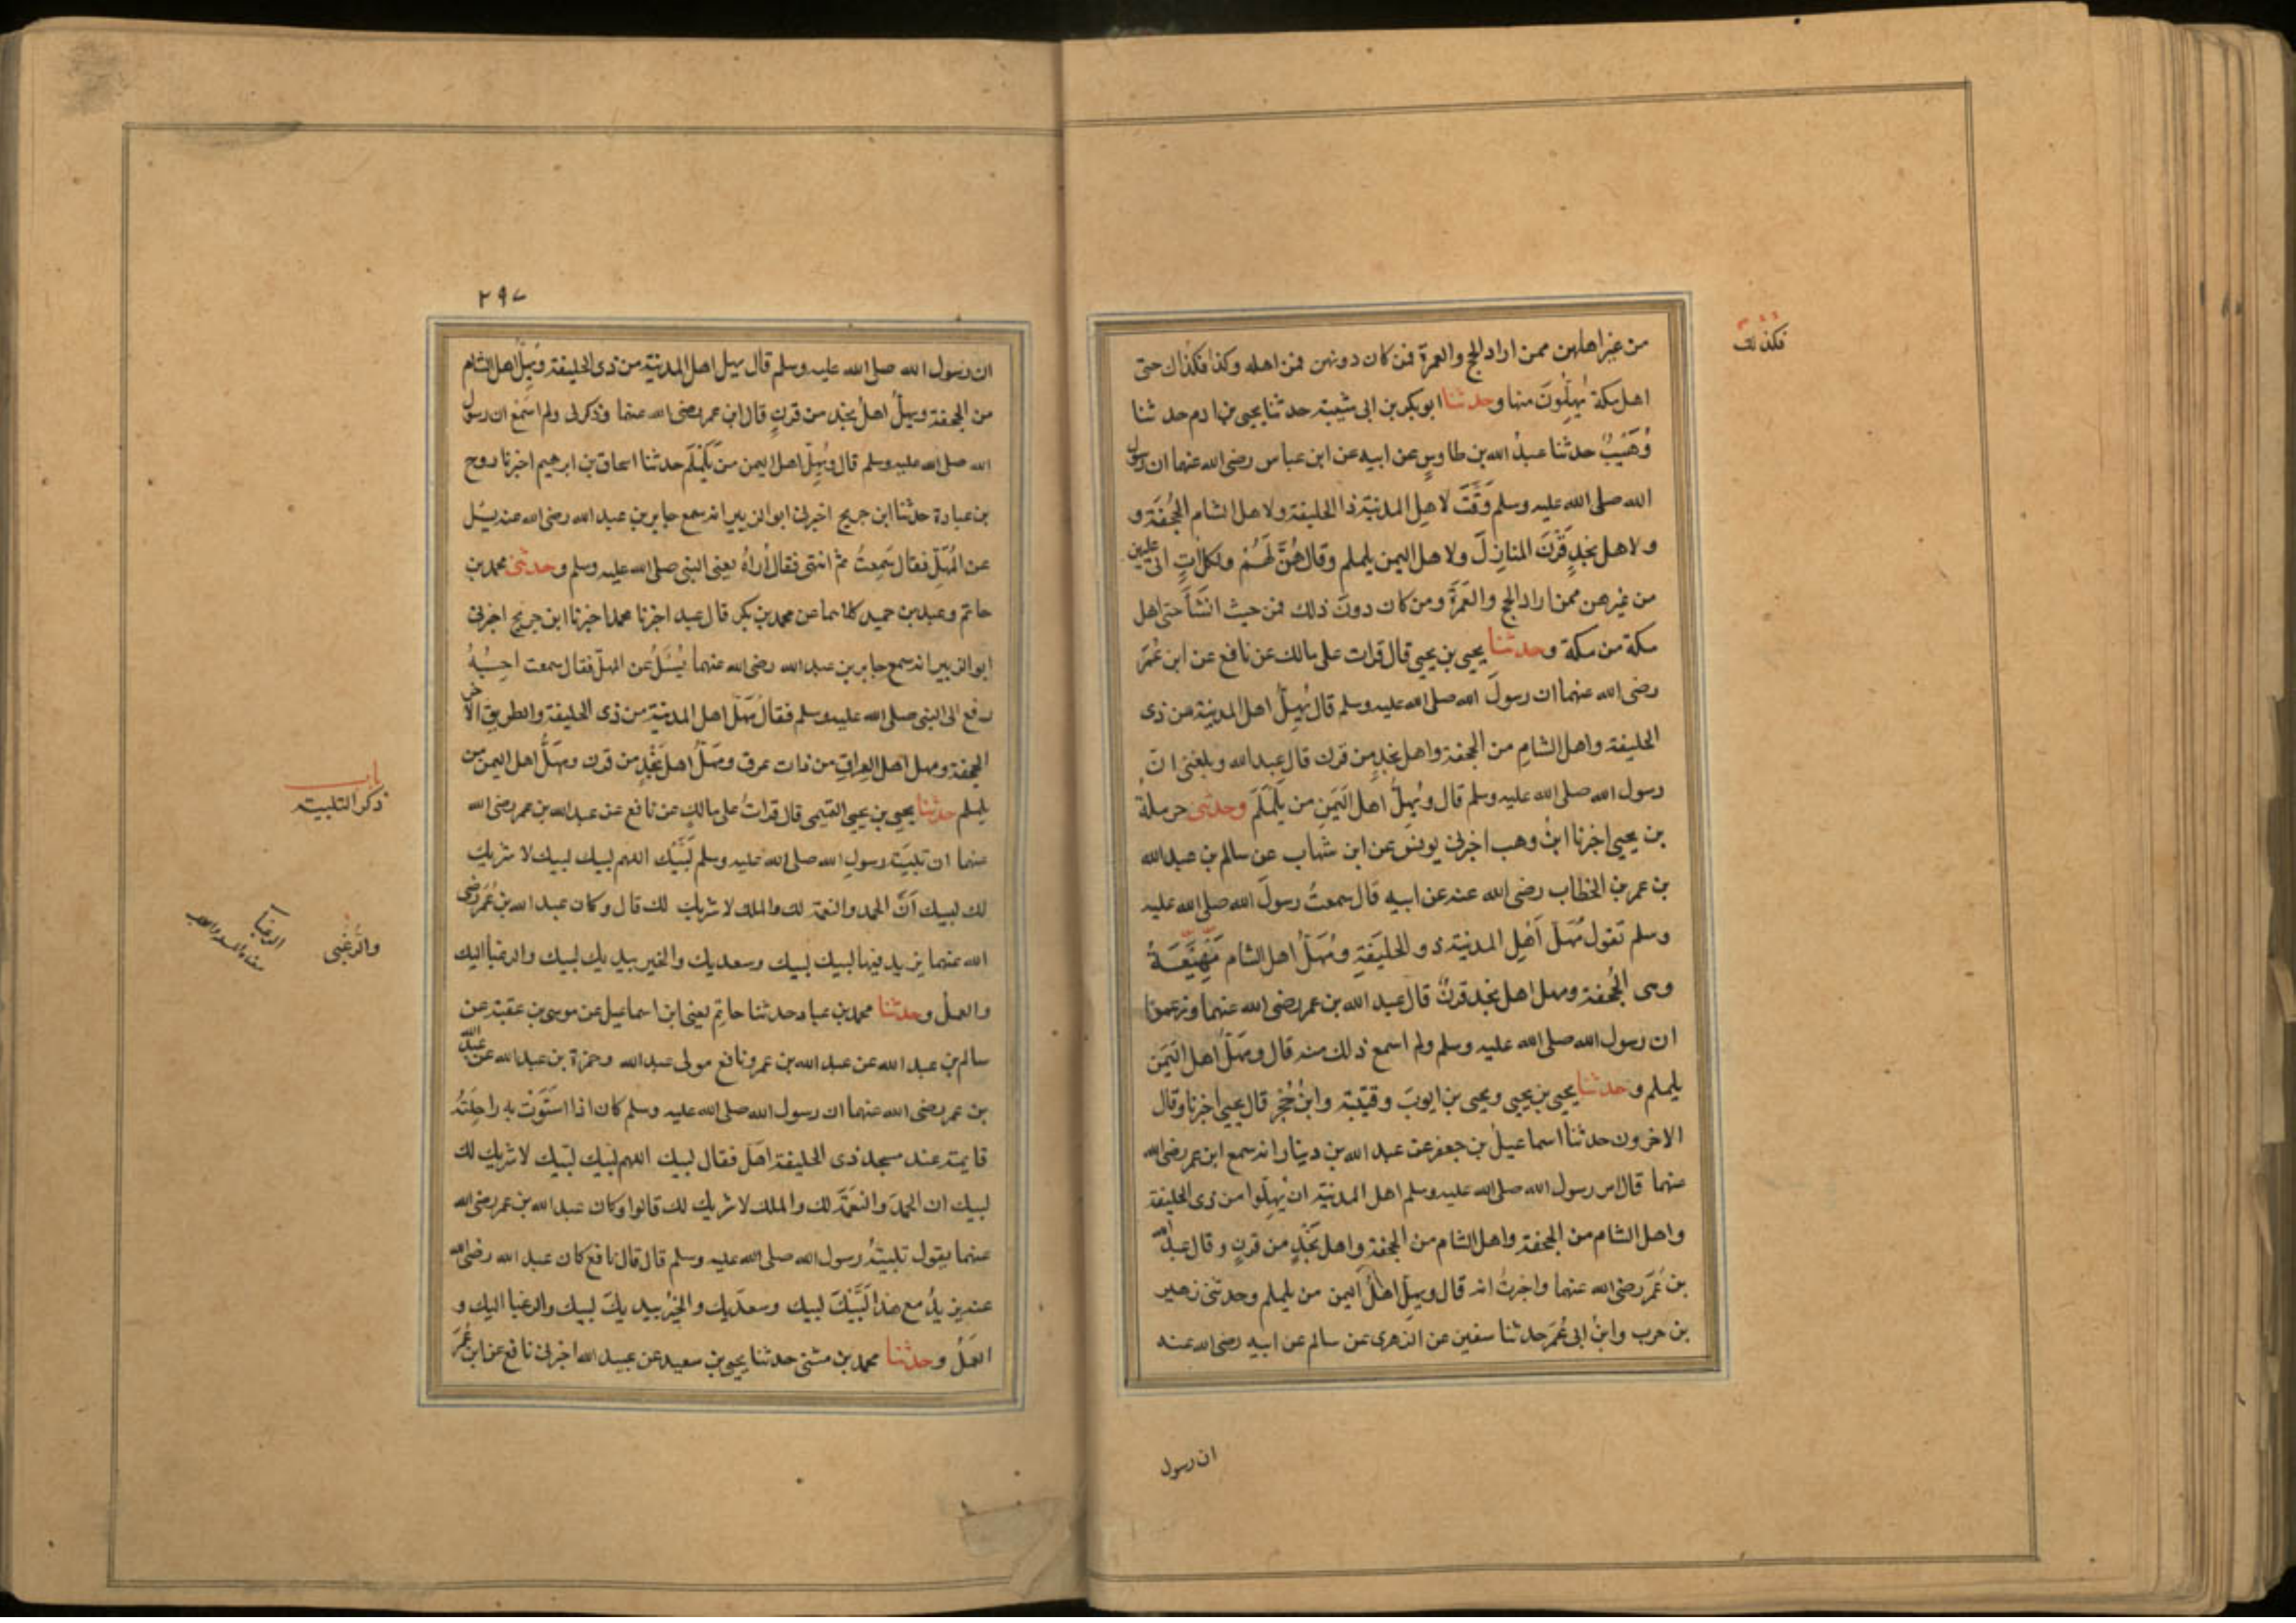 من غير اهلهن ممن اراد الحج والعمرة فمن كان دونهن فمن اهله وكذا فكذاك حتى
اهل مكة يُهِلُّونَ منها وحدثنا ابو بكر بن ابى شيبة حدثنا يحيى بن ادم حدثنا
وُهَيْبٌ حدثنا عبدُ الله بن طاوسٍ عن ابيه عن ابن عباس رضى الله عنهما ان رسول
الله صلى الله عليه وسلم وَقَّتَ لاهل المدينة ذا الحليفة ولاهل الشام الجُحْفَة و
ولاهل نجدٍ قَرْنَ المنازِلَ ولاهل اليمن يلملم وقال هُنَّ لَهُمْ ولكل اٰتٍ اتى عليهن
من غيرهن ممن اراد الحج والعُمْرَةَ ومن كان دونَ ذلك فمن حيث انشَأَ حتى اهل
مكة من مكة وحدثنا يحيى بن يحيى قال قرات على مالك عن نافع عن ابن عُمَرَ
رضى الله عنهما ان رسولَ الله صلى الله عليه وسلم قال يُهِلُّ اهل المدينة من ذى
الحليفة واهل الشامِ من الجحفة واهل نجدٍ من قرن قال عبد الله وبلغنى انّ
رسول الله صلى الله عليه وسلم قال ويُهِلُّ اهل اليَمَنِ من يَلَمْلَمَ وحدثنى حرملةُ
بن يحيى اخبرنا ابنُ وهب اخبرنى يونس عن ابن شهاب عن سالم بن عبد الله
بن عمر بن الخطاب رضى الله عنه عن ابيه قال سمعتُ رسولَ الله صلى الله عليه
وسلم تقول مُهَلّ اَهْلِ المدينة ذو الحليفَةِ ومُهَلُّ اهل الشام مَهْيَعَةُ
وهى الجُحفة ومهل اهل نجد قرنٌ قال عبد الله بن عمر رضى الله عنهما وزعموا
ان رسول الله صلى الله عليه وسلم ولم اسمع ذلك منه قال ومُهَلُّ اهل اليَمَن
يلملم وحدثنا يحيى بن يحيى ويحيى بن ايوبَ وقتيبة وابنُ حُجْر قال يحيى اخبرنا وقال
الاخرون حدثنا اسماعيلُ بن جعفر عن عبد الله بن دينار انه سمع ابن عمر رضى الله
عنهما قال امر رسول الله صلى الله عليه وسلم اهل المدينة ان يُهِلّوا من ذى الحليفة
واهل الشام من الجحفة واهل الشام من الجحفة واهل نَجْدٍ من قرنٍ وقال عبد الله
بن عُمَرَ رضى الله عنهما واخبرتُ انه قال ويهل اهْلُ اليمن من يلملم وحدثنى زهير
بن حرب وابنُ ابى عُمَرَ حدثنا سفين عن الزهرى عن سالم عن ابيه رضى الله عنه
فكذلك
ان رسول
٢٩٧
ان رسول الله صلى الله عليه وسلم قال يهل اهل المدينة من ذى الحليفة ويُهِلُّ اهل الشام
من الجحفة ويهلُّ اهلُ نجد من قرنٍ قال ابن عمر رضى الله عنهما وذكر لى ولم اسْمَعْ ان رسول
الله صلى الله عليه وسلم قال ويُهِلّ اهل اليمن من يَلَمْلَم حدثنا اسحاق بن ابرهيم اخبرنا روح
بن عبادة حدثنا ابن جريج اخبرنى ابو الزبير انه سمع جابر بن عبد الله رضى الله عنه يسئل
عن المُهَلّ فقال سَمِعتُ ثم انتهى فقال اُراهُ يعنى النبى صلى الله عليه وسلم وحدثنى محمد بن
حاتم وعبد بن حميد كلاهما عن محمد بن بكر قال عبد اخبرنا محمد اخبرنا ابن جريج اخبرنى
ابو الزبير انه سمع جابر بن عبد الله رضى الله عنهما يُسْئَلُ عن المهلّ فقال سمعت احسِبُهُ
رفع الى النبى صلى الله عليه وسلم فقال مُهَلُّ اهل المدينة من ذى الحليفة والطريق الاخر
الجحفة ومهل اهل العِراق من ذات عرق ومُهَلُّ اهل نَجْدٍ من قرن ومهَلُّ اهل اليمن من
يلملم حدثنا يحيى بن يحيى التميمى قال قراتُ على مالكٍ عن نافع عن عبد الله بن عمر رضى الله
عنهما ان تلبيَة رسولِ الله صلى الله عليه وسلم لَبَّيْك اللهم لبيك لبيك لا شريك
لك لبيك اَنَّ الحمد والنعمة لك والملك لا شريك لك قال وكان عبد الله بن عُمَرَ رضى
الله عنهما يزيد فيها لبيك لبيك وسعديك والخير بيديك لبيك والرغبا اليك
والعملُ وحدثنا محمد بن عباد حدثنا حاتِم يعنى ابن اسماعيل عن موسى بن عقبة عن
سالم بن عبد الله عن عبد الله بن عمر ونافع مولى عبد الله وحمزة بن عبد الله عن عبد الله
بن عمر رضى الله عنهما ان رسول الله صلى الله عليه وسلم كان اذا استَوَتْ به راحِلَتُهُ
قايمة عند مسجد ذى الحليفة اهَلّ فقال لبيك اللهم لبيك لبّيك لا شريك لك
لبيك ان الحمدَ والنعْمَةَ لك والملك لا شريك لك قالوا وكان عبد الله بن عمر رضى الله
عنهما يقول تلبيةُ رسول الله صلى الله عليه وسلم قال قال نافع كان عبد الله رضى الله
عنه يزيدُ مع هذا لَبَّيْكَ لبيك وسعدَيك والخيْرُ بيديكَ لبيك والرغبا اليك و
العَمَلُ وحدثنا محمد بن مثنى حدثنا يحيى بن سعيد عن عبيد الله اخبرنى نافع عن ابن عُمَرَ
باب
ذكر التلبية
والرُّغْبى
الرغبا